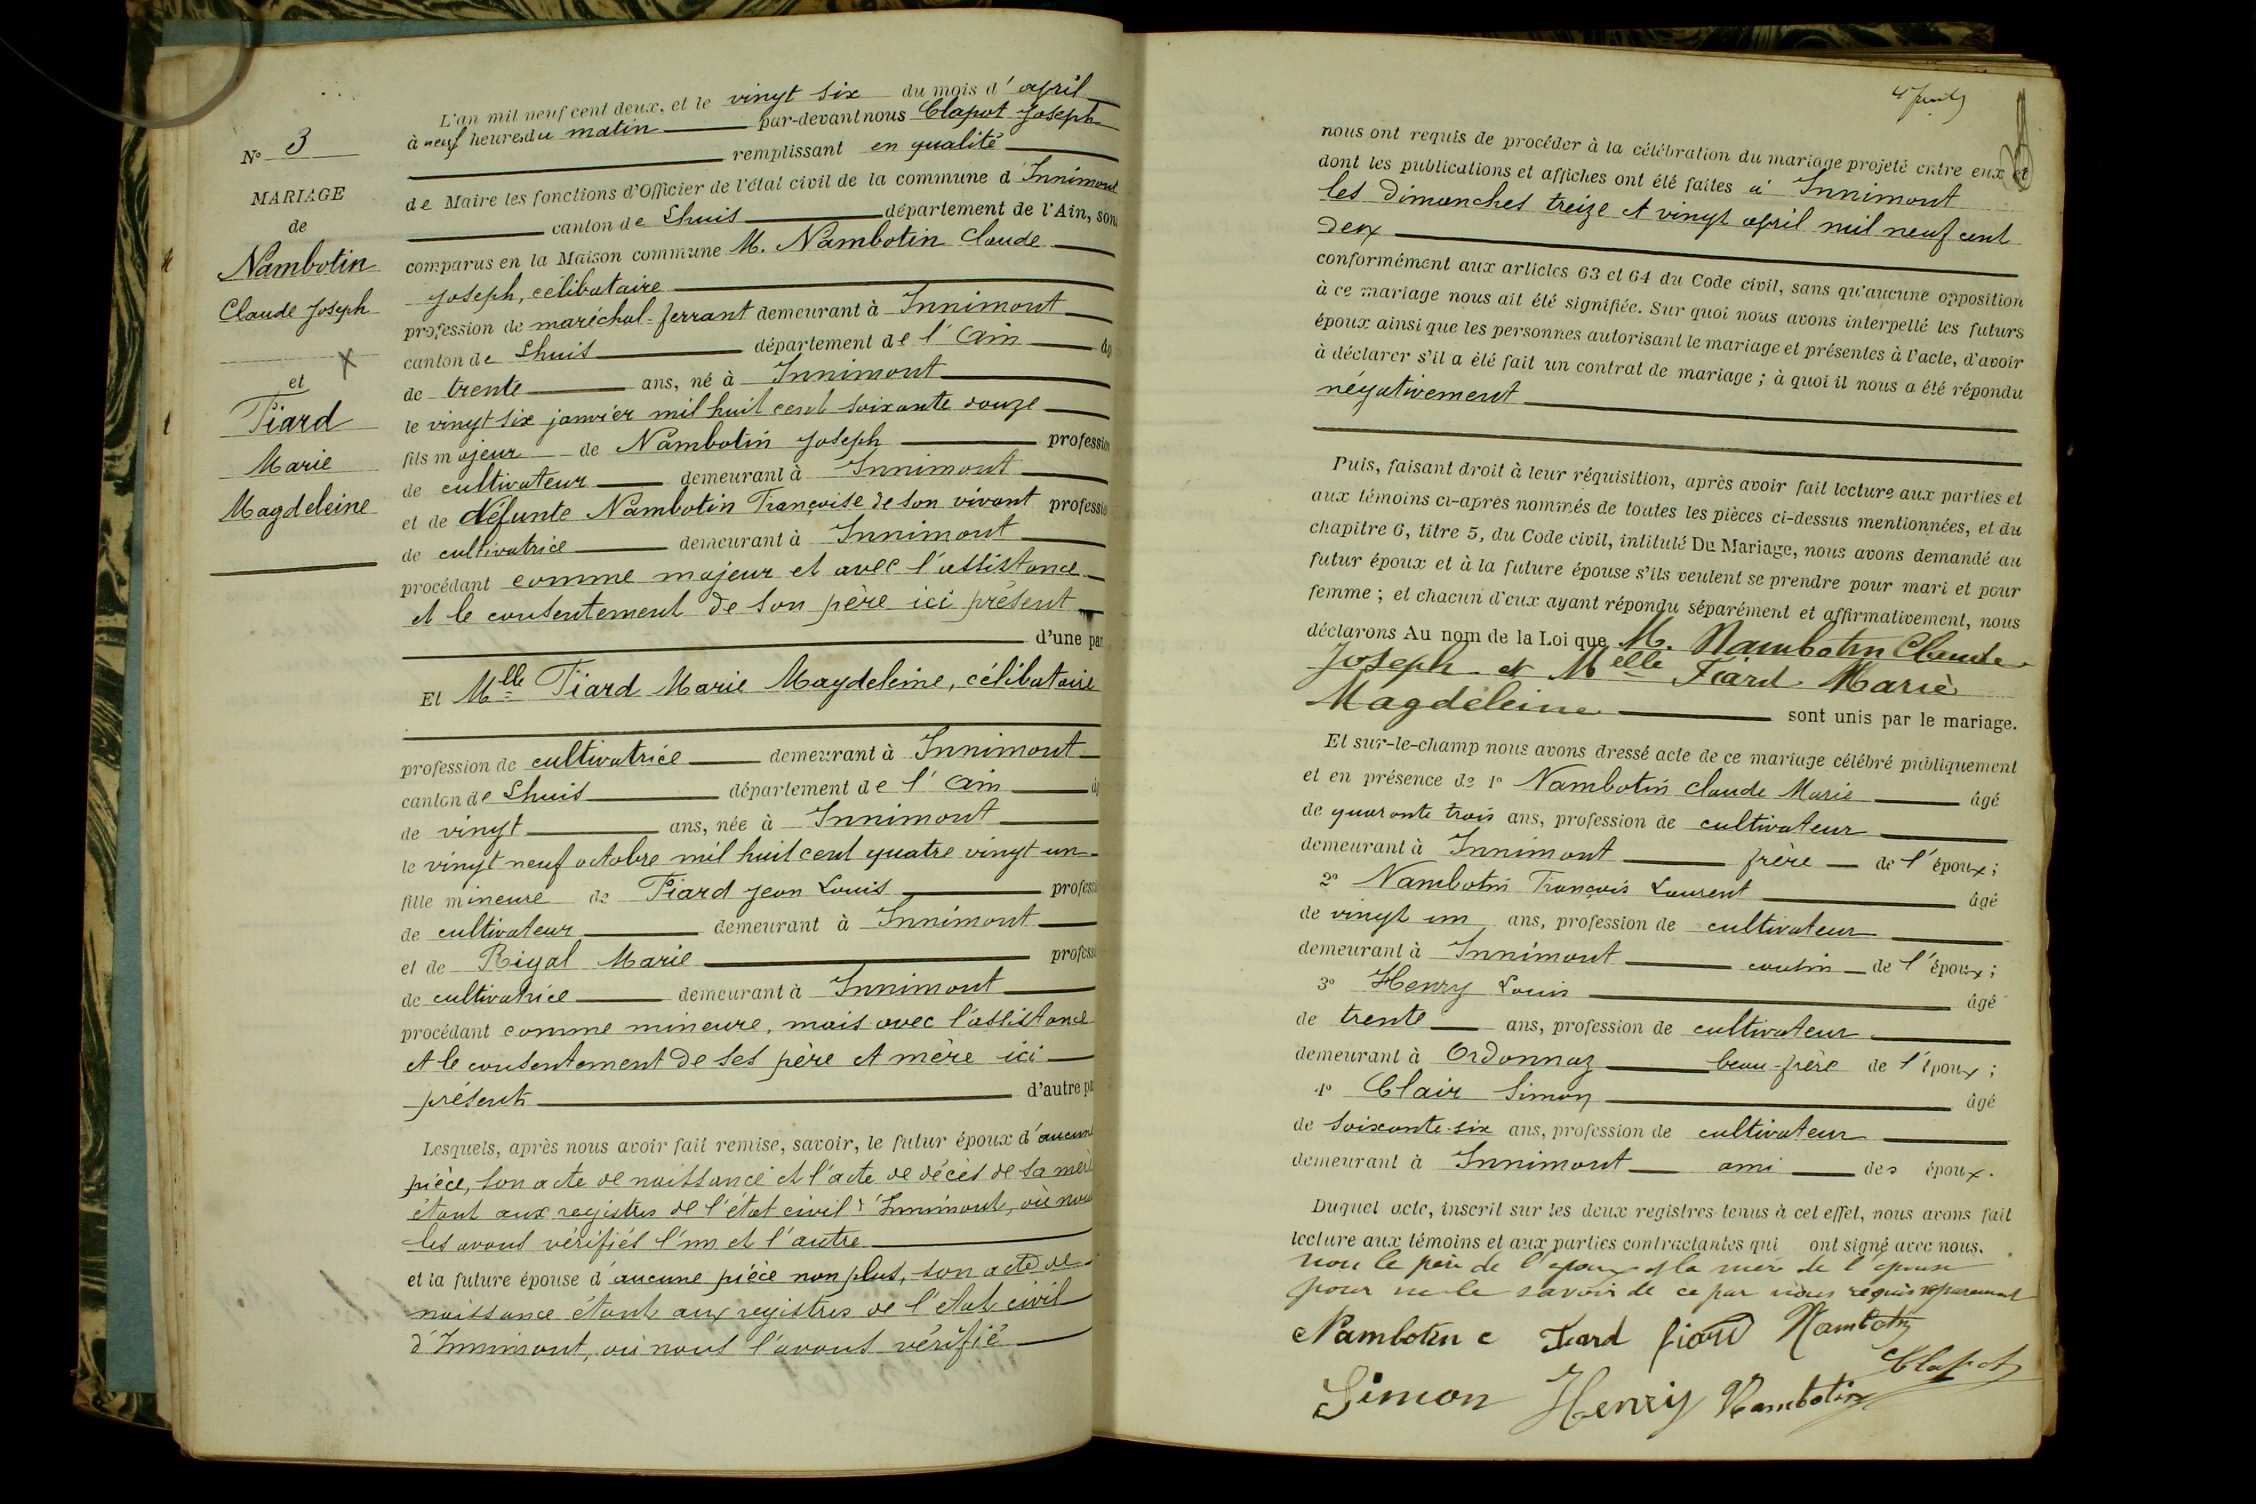 N° 3
MARIAGE
de
Nambotin
Claude Joseph
et
Fiard
Marie
Magdeleine
L'an mil neuf cent deux, et le vingt six du mois d'april
à neuf heures du matin par-devant nous Clapot Joseph
remplissant en qualité
de Maire les fonctions d'Officier de l'état civil de la commune d'Innimont
canton de Lhuis département de l'Ain, sont
comparus en la Maison commune M. Nambotin Claude
Joseph, célibataire
profession de maréchal-ferrant demeurant à Innimont
canton de Lhuis département de l'Ain âg
de trente ans, né à Innimont
le vingt six janvier mil huit cent soixante douze
fils majeur de Nambotin Joseph profession
de cultivateur demeurant à Innimont
et de défunte Nambotin Françoise de son vivant professio
de cultivatrice demeurant à Innimont
procédant comme majeur et avec l'assistance
et le consentement de son père ici présent
d'une par
Et Melle Fiard Marie Magdeleine, célibataire
profession de cultivatrice demeurant à Innimont
canton de Lhuis département de l'Ain âg
de vingt ans, née à Innimont
le vingt neuf octobre mil huit cent quatre vingt un
fille mineure de Fiard Jean Louis professi
de cultivateur demeurant à Innimont
et de Rigal Marie professi
de cultivatrice demeurant à Innimont
procédant comme mineure, mais avec l'assistance
et le consentement de ses père et mère ici
présents d'autre pa
Lesquels, après nous avoir fait remise, savoir, le futur époux d'aucune
pièce, son acte de naissance et l'acte de décès de sa mère
étant aux registres de l'état civil d'Innimont, où nous
les avons vérifiés l'un et l'autre
et la future épouse d'aucune pièce non plus, son acte de
naissance étant aux registres de l'état civil
d'Innimont, où nous l'avons vérifié
nous ont requis de procéder à la célébration du mariage projeté entre eux et
dont les publications et affiches ont été faites à Innimont
les dimanches treize et vingt april mil neuf cent
deux
conformément aux articles 63 et 64 du Code civil, sans qu'aucune opposition
à ce mariage nous ait été signifiée. Sur quoi nous avons interpellé les futurs
époux ainsi que les personnes autorisant le mariage et présentes à l'acte, d'avoir
à déclarer s'il a été fait un contrat de mariage ; à quoi il nous a été répondu
négativement
Puis, faisant droit à leur réquisition, après avoir fait lecture aux parties et
aux témoins ci-après nommés de toutes les pièces ci-dessus mentionnées, et du
chapitre 6, titre 5, du Code civil, intitulé Du Mariage, nous avons demandé au
futur époux et à la future épouse s'ils veulent se prendre pour mari et pour
femme ; et chacun d'eux ayant répondu séparément et affirmativement, nous
déclarons Au nom de la Loi que M. Nambotin Claude
Joseph et Melle Fiard Marie
Magdeleine sont unis par le mariage.
Et sur-le-champ nous avons dressé acte de ce mariage célébré publiquement
et en présence de 1° Nambotin Claude Marie âgé
de quarante trois ans, profession de cultivateur
demeurant à Innimont frère de l'époux ;
2° Nambotin François Laurent âgé
de vingt un ans, profession de cultivateur
demeurant à Innimont cousin de l'époux ;
3° Henry Louis âgé
de trente ans, profession de cultivateur
demeurant à Ordonnaz beau-frère de l'époux ;
4° Clair Simon âgé
de soixante-six ans, profession de cultivateur
demeurant à Innimont ami des époux.
Duquel acte, inscrit sur les deux registres tenus à cet effet, nous avons fait
lecture aux témoins et aux parties contractantes qui ont signé avec nous.
non le père de l'époux et la mère de l'épouse
pour ne le savoir de ce par nous requis séparement
Nambotin c Fiard fiard Nambotin
Clapot
Simon Henry Nambotin